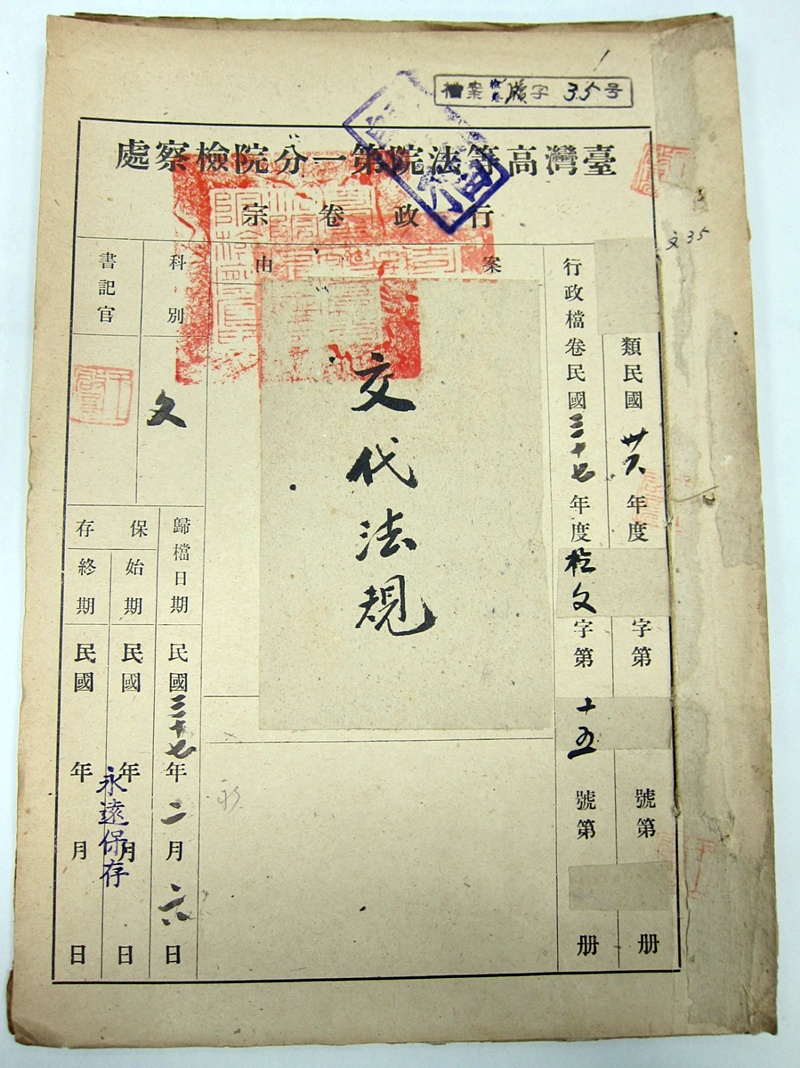 檔案 字 35号
臺灣高等法院第一分院檢察處
行政卷宗
文35
類民國卅六年度 字第 號第 册
行政檔卷民國三十七年度 文字第十五號第 册
案由
交代法規
科別
文
書記官
歸檔日期 民國三十七年二月六日
保存
始期 民國 年 月 日
終期 民國 年 月 日
永遠保存